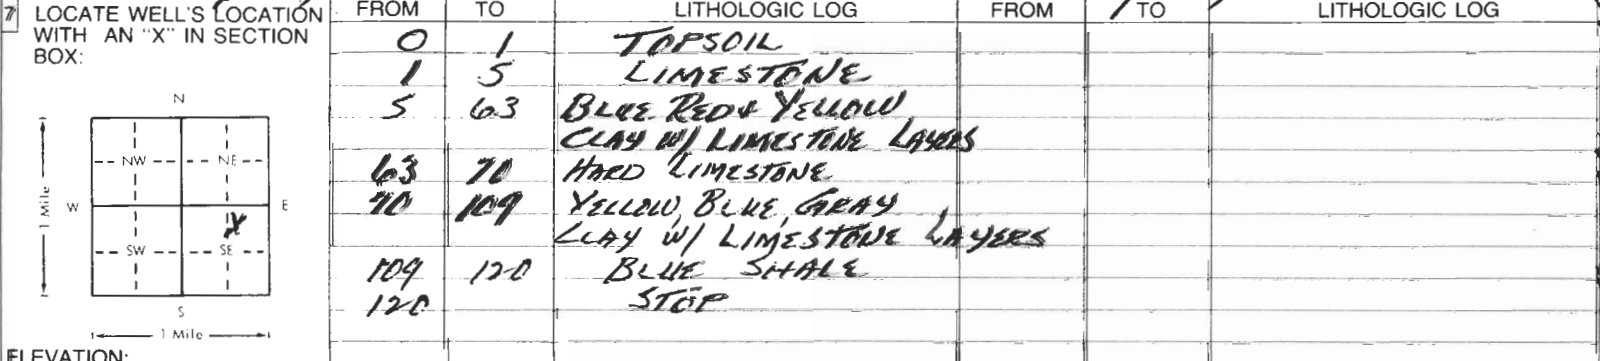 7 LOCATE WELL'S LOCATION
WITH AN "X" IN SECTION
BOX:
N
NW NE
W E
X
SW SE
S
1 Mile
1 Mile
ELEVATION:
FROM TO LITHOLOGIC LOG FROM TO LITHOLOGIC LOG
0 1 TOPSOIL
1 5 LIMESTONE
5 63 BLUE RED & YELLOW
CLAY W/ LIMESTONE LAYERS
63 70 HARD LIMESTONE
70 109 YELLOW, BLUE, GRAY
CLAY W/ LIMESTONE LAYERS
109 120 BLUE SHALE
120 STOP